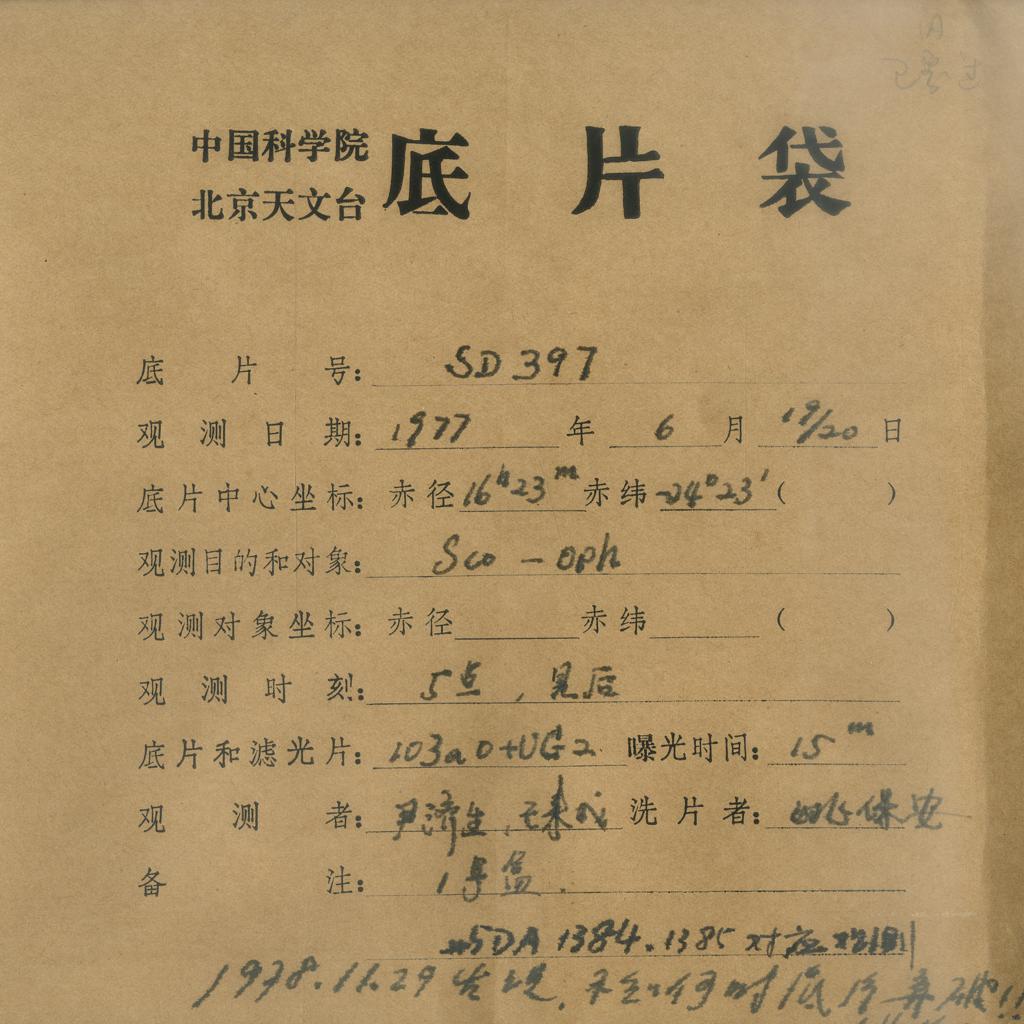 中国科学院
北京天文台
底片袋
底片号: SD 397
观测日期: 1977 年 6 月 19/20 日
底片中心坐标: 赤径 16ʰ23ᵐ 赤纬 -24°23′ ( )
观测目的和对象: Sco - oph
观测对象坐标: 赤径 赤纬 ( )
观测时刻: 5点, 见后
底片和滤光片: 103a0+UG2 曝光时间: 15ᵐ
观测者: 尹济生, 王 洗片者: 姚保安
备注: 1号盒.
SDA 1384.1385 对应
1978.11.29 发现, 不知何时底片弄破!!